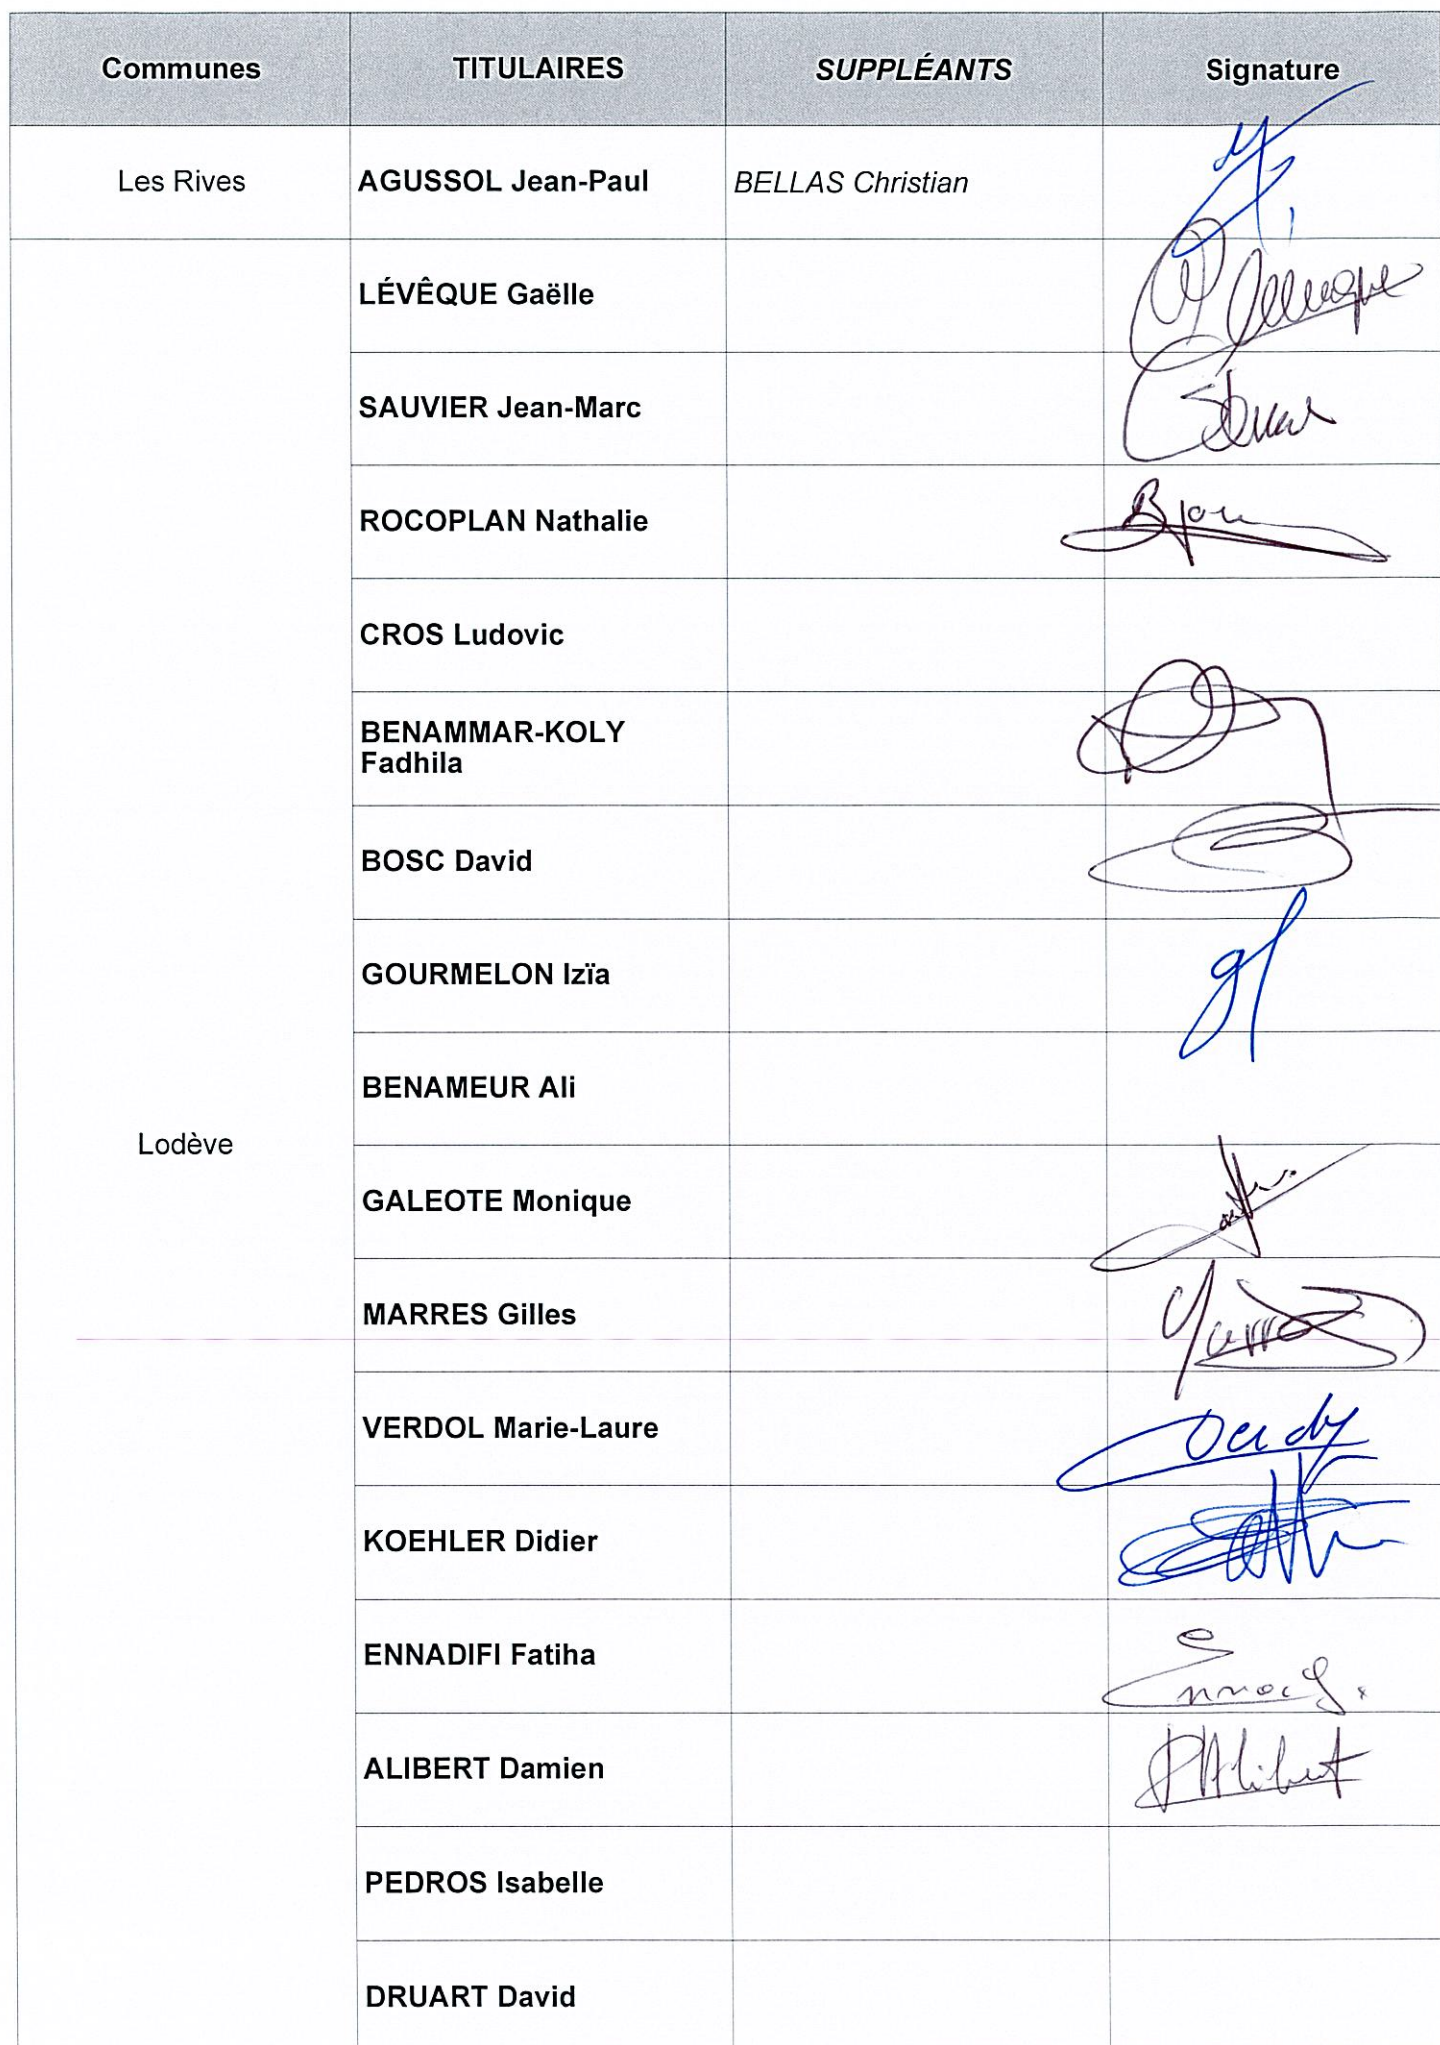 Communes TITULAIRES SUPPLÉANTS Signature
Les Rives AGUSSOL Jean-Paul BELLAS Christian
LÉVÊQUE Gaëlle
SAUVIER Jean-Marc
ROCOPLAN Nathalie
CROS Ludovic
BENAMMAR-KOLY
Fadhila
BOSC David
GOURMELON Izïa
BENAMEUR Ali
Lodève
GALEOTE Monique
MARRES Gilles
VERDOL Marie-Laure
KOEHLER Didier
ENNADIFI Fatiha
ALIBERT Damien Alibert
PEDROS Isabelle
DRUART David